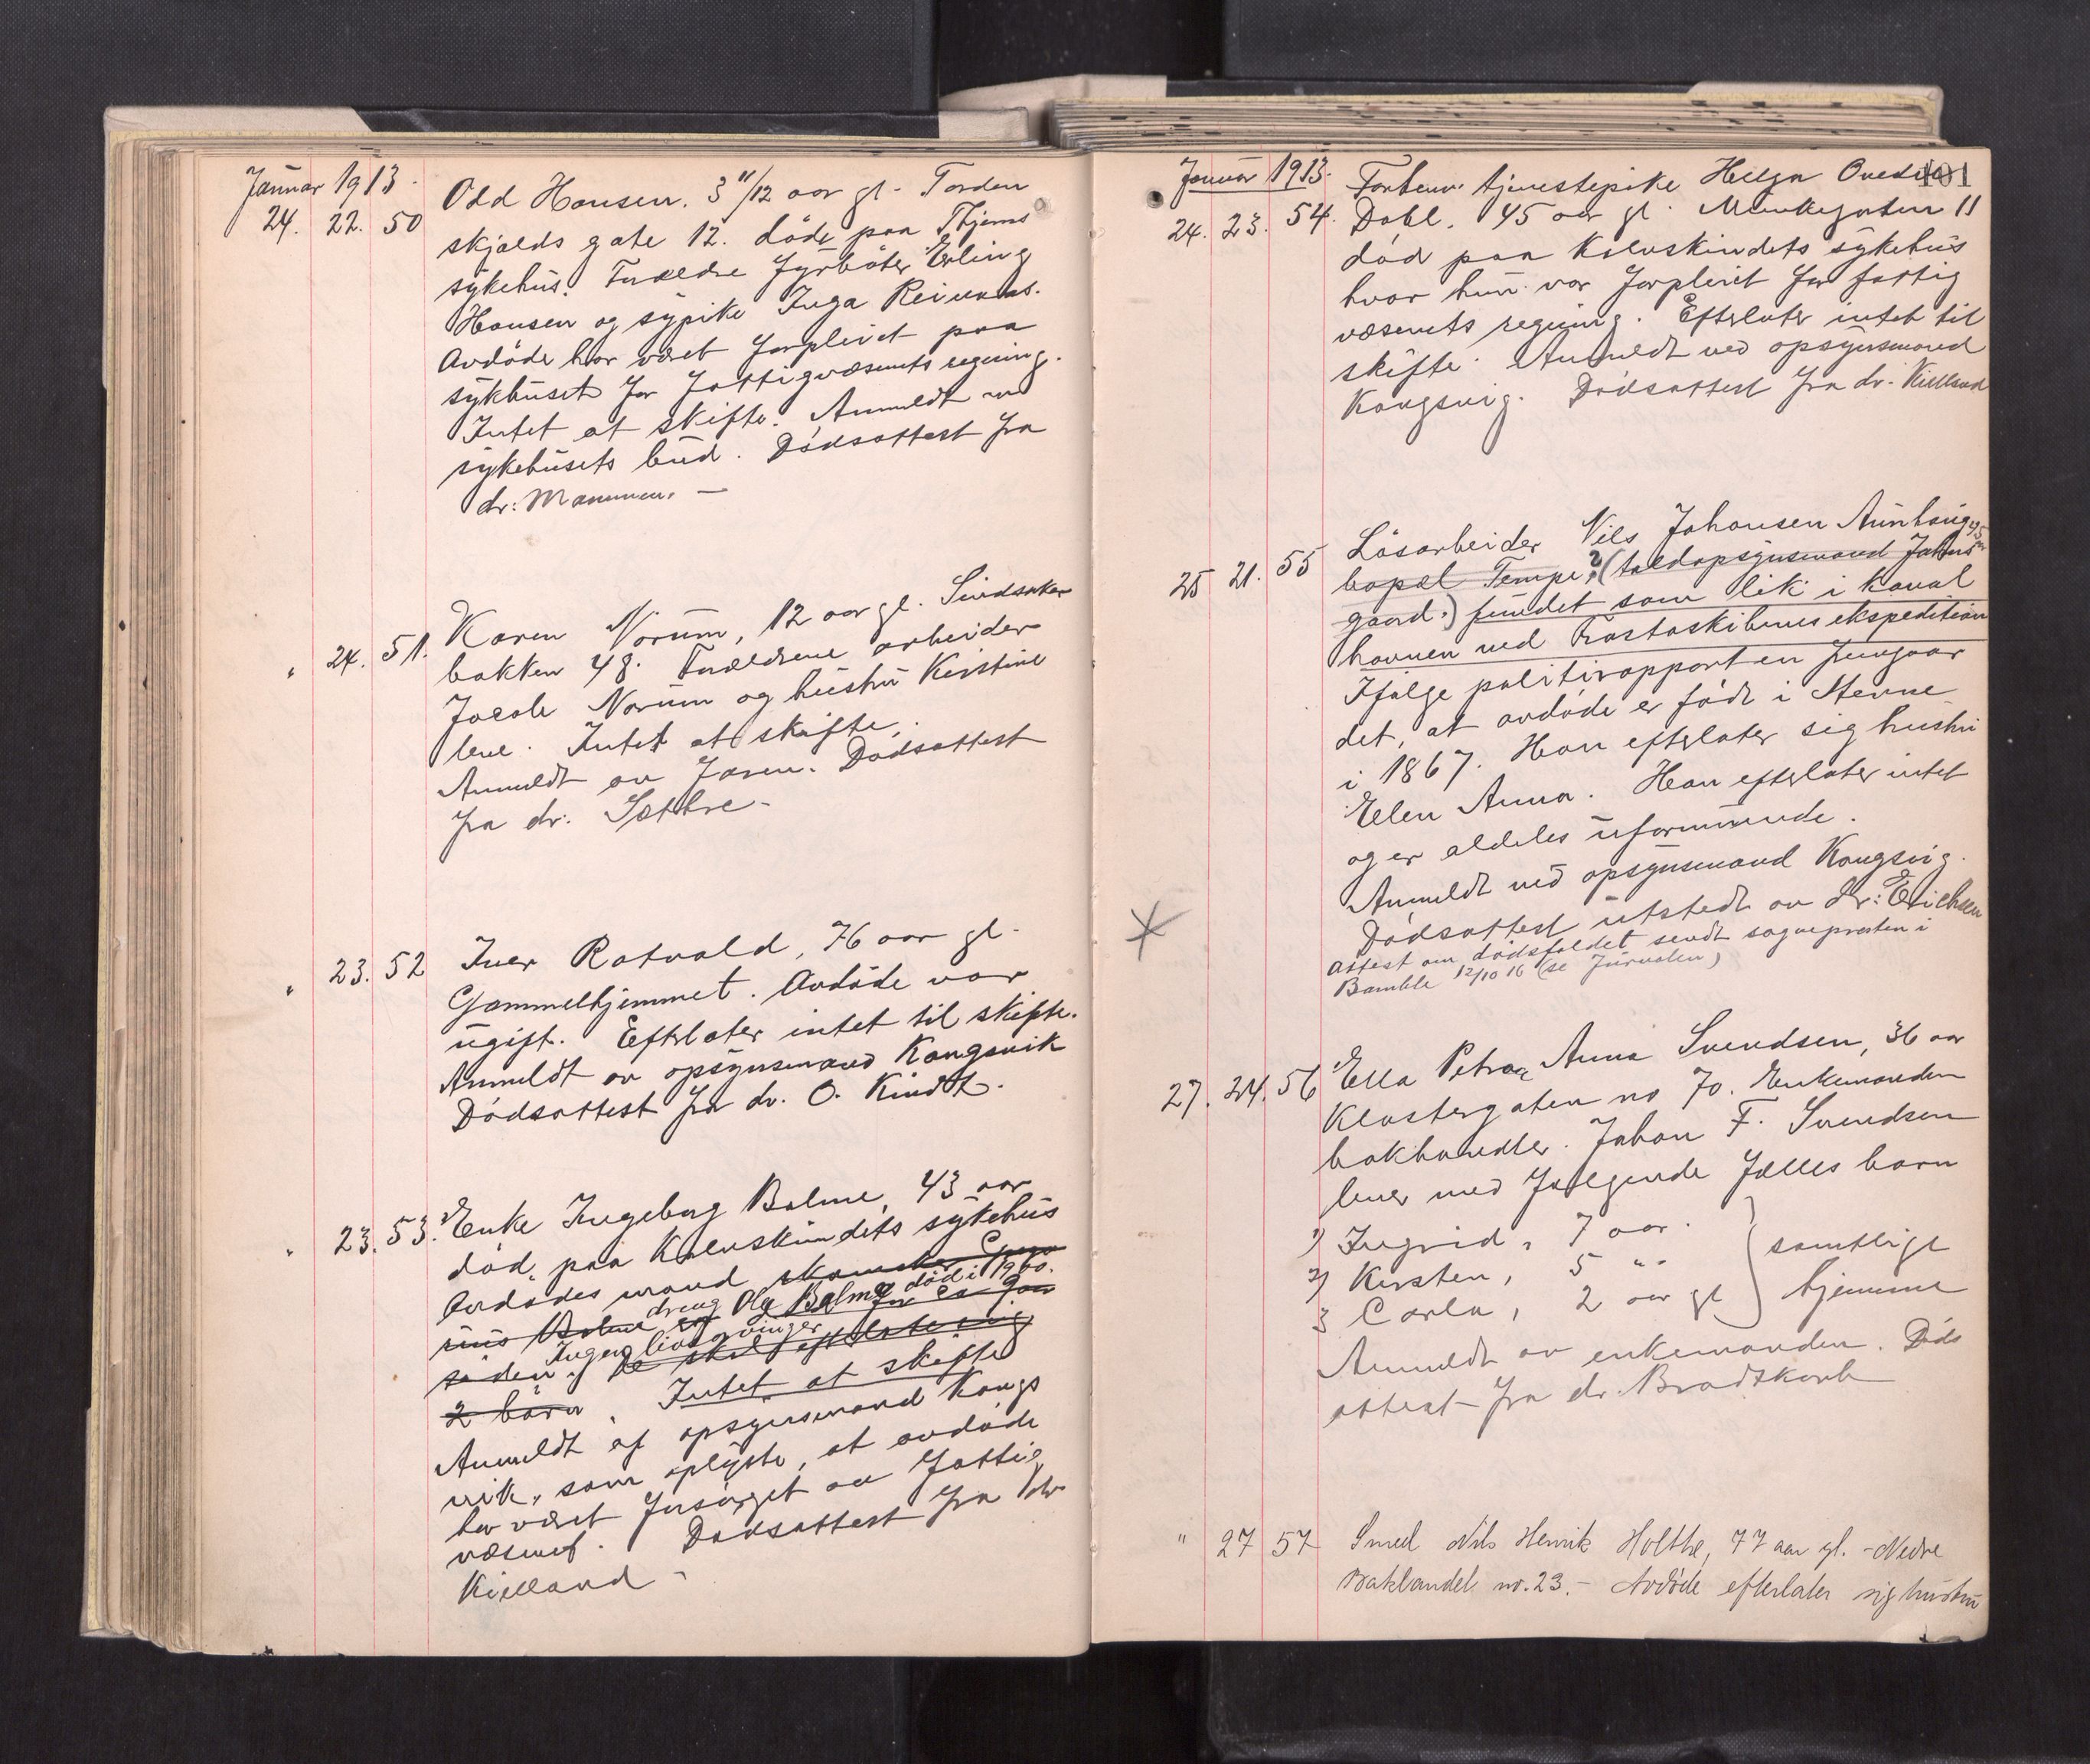 Januar 1913.
24. 22. 50 Odd Hansen. 3 11/12 aar gl. Torden
skjolds gate 12. døde paa Thjems
sykehus. Forældre fyrbøter Erling
Hansen og sypike Inga Reinaas.
Avdøde har været forpleiet paa
sykhuset for fattigvæsenets regning.
Intet at skifte. Anmeldt ved
sykehusets bud. Dødsattest fra
dr: Mammen. —
" 24. 51. Karen Norum, 12 aar gl. Sindsaker
bakken 48. Forældrene arbeider
Jacob Norum og hustru Kirstine
leve. Intet at skifte.
Anmeldt av faren. Dødsattest
fra dr. Sættre -
" 23. 52 Iver Ratvold, 76 aar gl.
Gammelhjemmet. Avdøde var
ugift. Efterlater intet til skifte.
Anmeldt av opsynsmand Kongsvik
Dødsattest fra dr. O. Kindt.
" 23. 53. Enke Ingeborg Bolme, 43 aar
død paa Kalvskindets sykehus
Avdødes mand skomaker
dreng Ole Bolme død i 1900.
rius Bolme for 9 aar
Ingen livsarvinger
siden, de skal efterlate sig
2 barn. Intet at skifte
Anmeldt af opsynsmand Kongs
vik, som oplyste, at avdøde
har været forsørget av fattig
væsenet. Dødsattest fra dr
Kielland -
101
Januar 1913.
24. 23. 54. Forhenv. tjenestepike Helga
Dahl. 45 aar gl. Munkegaten 11
død paa Kalvskindets sykehus
hvor hun var forpleiet for fattig
væsenets regning. Efterlater intet til
skifte. Anmeldt ved opsynsmand
Kongsvig. Dødsattest fra dr. Kielland
25 21. 55 Løsarbeider Nils Johansen Aunhaug 45 aar
bopæl Tempe? (toldopsynsmand
gaard.) fundet som lik i kanal
havnen ved Fostaskibenes ekspedition
Ifølge politirapporten fremgaar
det, at avdøde er født i
i 1867. Han efterlater sig hustru
Ellen Anna. Han efterlater intet
og er aldeles uformuende.
Anmeldt ved opsynsmand Kongsvig.
Dødsattest utstedt av dr: Erichsen
Attest om dødsfaldet sendt sognepresten i
Bamble 12/10 16 (se Jurnalen)
27. 24. 56 Ella Petra Anna Svendsen, 36 aar
Klostergaten no 70. Enkemanden
bokhandler. Johan F. Svendsen
lever med følgende fælles barn
1) Ingrid, 7 aar.
2) Kirsten, 5 " samtlige
3 Carla, 2 aar gl hjemme
Anmeldt av enkemanden. Døds
attest fra dr. Bradtkorb
" 27 57 Smed Nils Henrik Holthe, 77 aar gl. - Nedre
Baklandet nr. 23. - Avdøde efterlater sig hustru